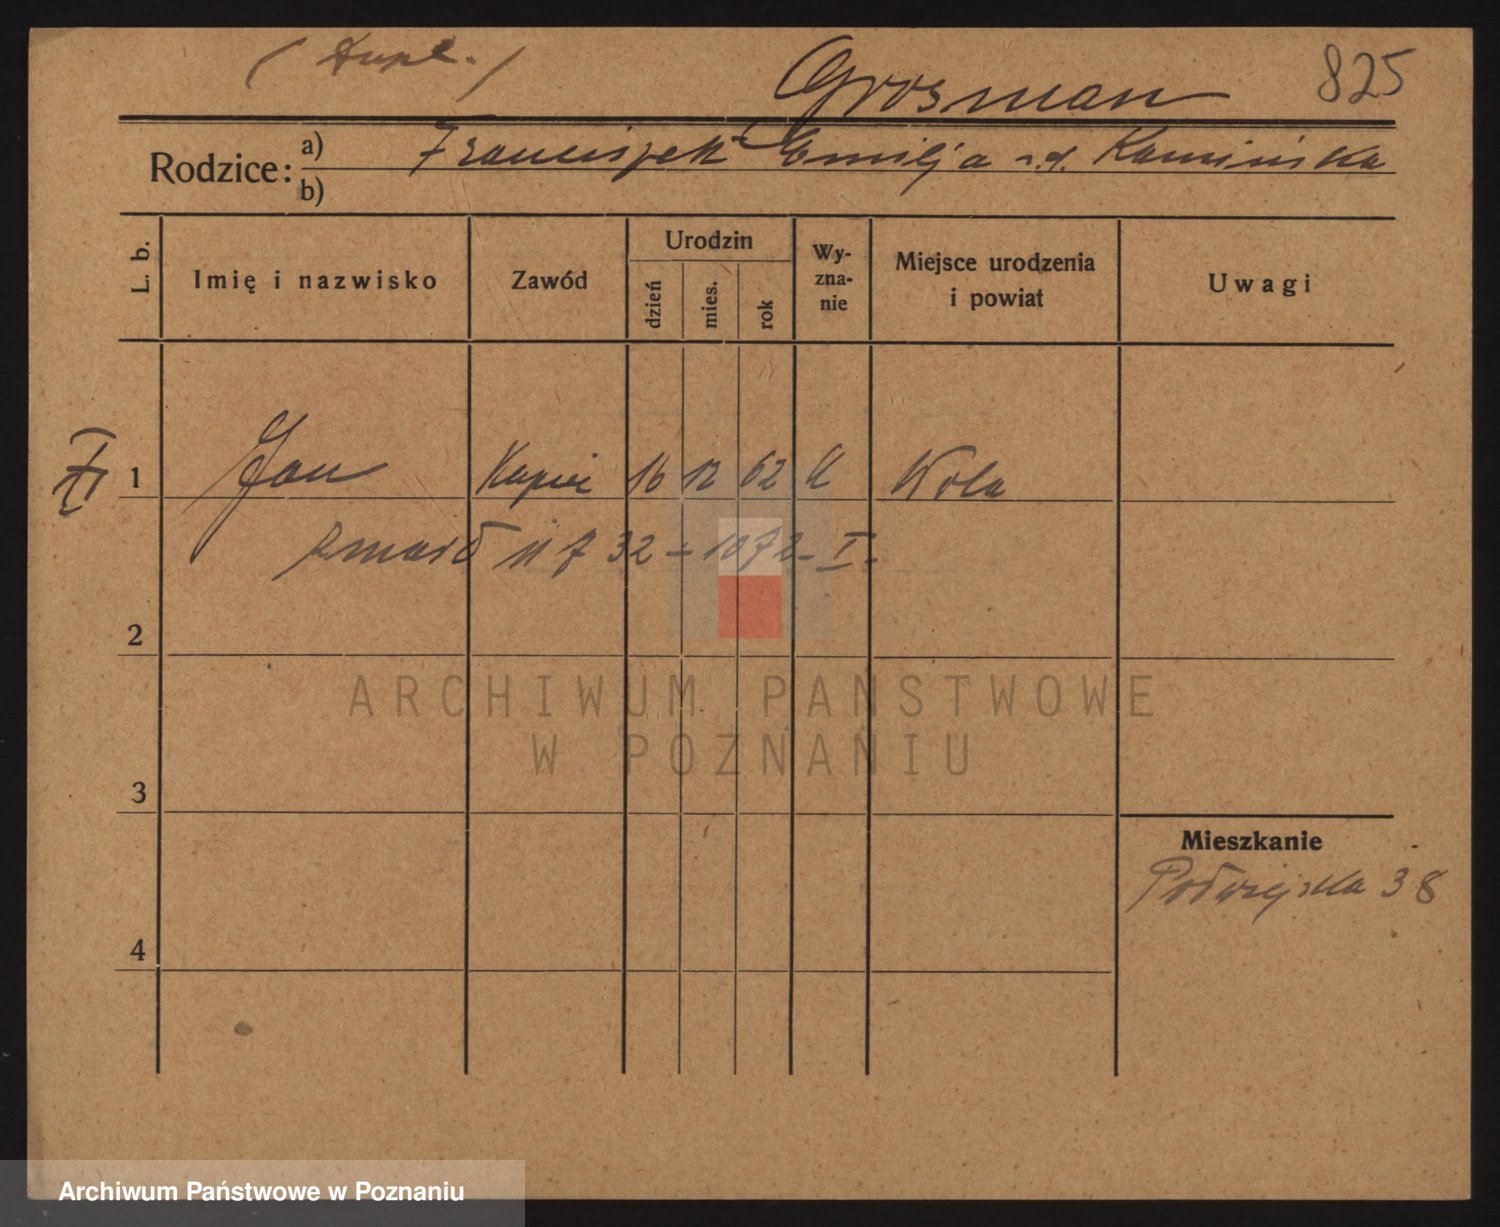 (Dupl.)
Grosman
825
Rodzice:
a) Franciszek Emilja z.d. Kamińska
b)
L. b.
Imię i nazwisko
Zawód
Urodzin
dzień
mies.
rok
Wy-
zna-
nie
Miejsce urodzenia
i powiat
Uwagi
1 Jan Kupiec 16 12 62 K Wola
zmarł 11 7 32 - 1072 - I.
2
3
4
Mieszkanie
Podwiejska 38
ARCHIWUM PAŃSTWOWE
W POZNANIU
Archiwum Państwowe w Poznaniu